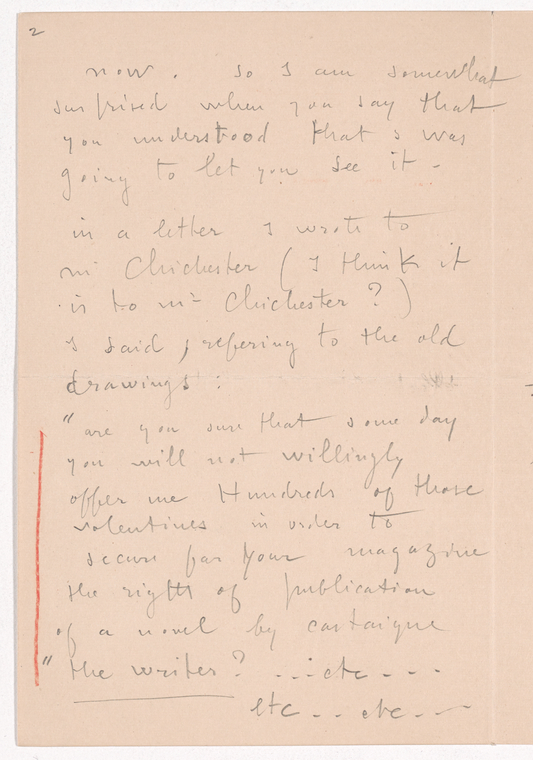 2
now. so I am somewhat
surprised when you say that
you understood that I was
going to let you see it -
in a letter I wrote to
mr Chichester ( I think it
is to mr Chichester ? )
I said, refering to the old
drawings :
"are you sure that some day
you will not willingly
offer me Hundreds of those
valentines in order to
secure for your magazine
the right of publication
of a novel by castaigne
" the writer ? ... etc ---
etc -- etc ---